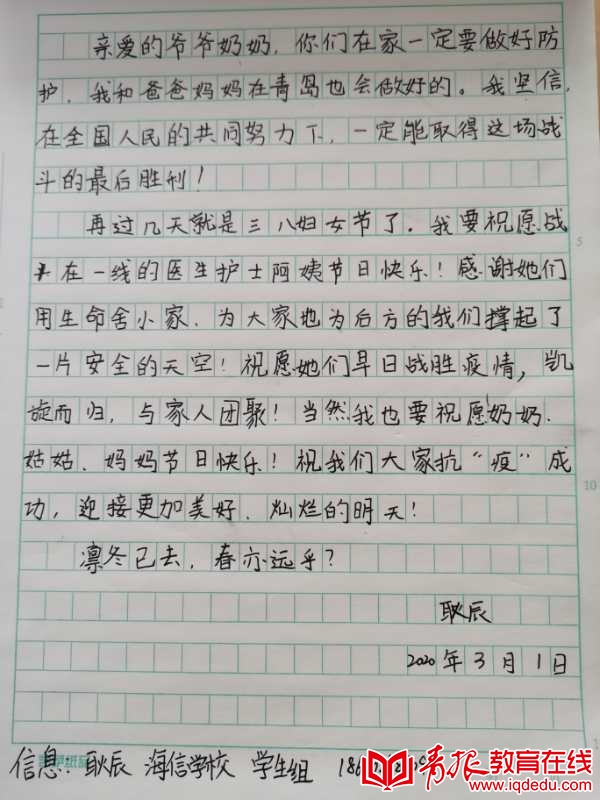 亲爱的爷爷奶奶，你们在家一定要做好防
护，我和爸爸妈妈在青岛也会做好的。我坚信，
在全国人民的共同努力下，一定能取得这场战
斗的最后胜利！
再过几天就是三八妇女节了。我要祝愿战
斗在一线的医生护士阿姨节日快乐！感谢她们
用生命舍小家，为大家地为后方的我们撑起了
一片安全的天空！祝愿她们早日战胜疫情，凯
旋而归，与家人团聚！当然我也要祝愿奶奶、
姑姑、妈妈节日快乐！祝我们大家抗“疫”成
功，迎接更加美好、灿烂的明天！
凛冬已去，春亦远乎？
耿辰
2020年3月1日
信息：耿辰 海信学校 学生组
青报 教育在线
www.iqdedu.com
5
10